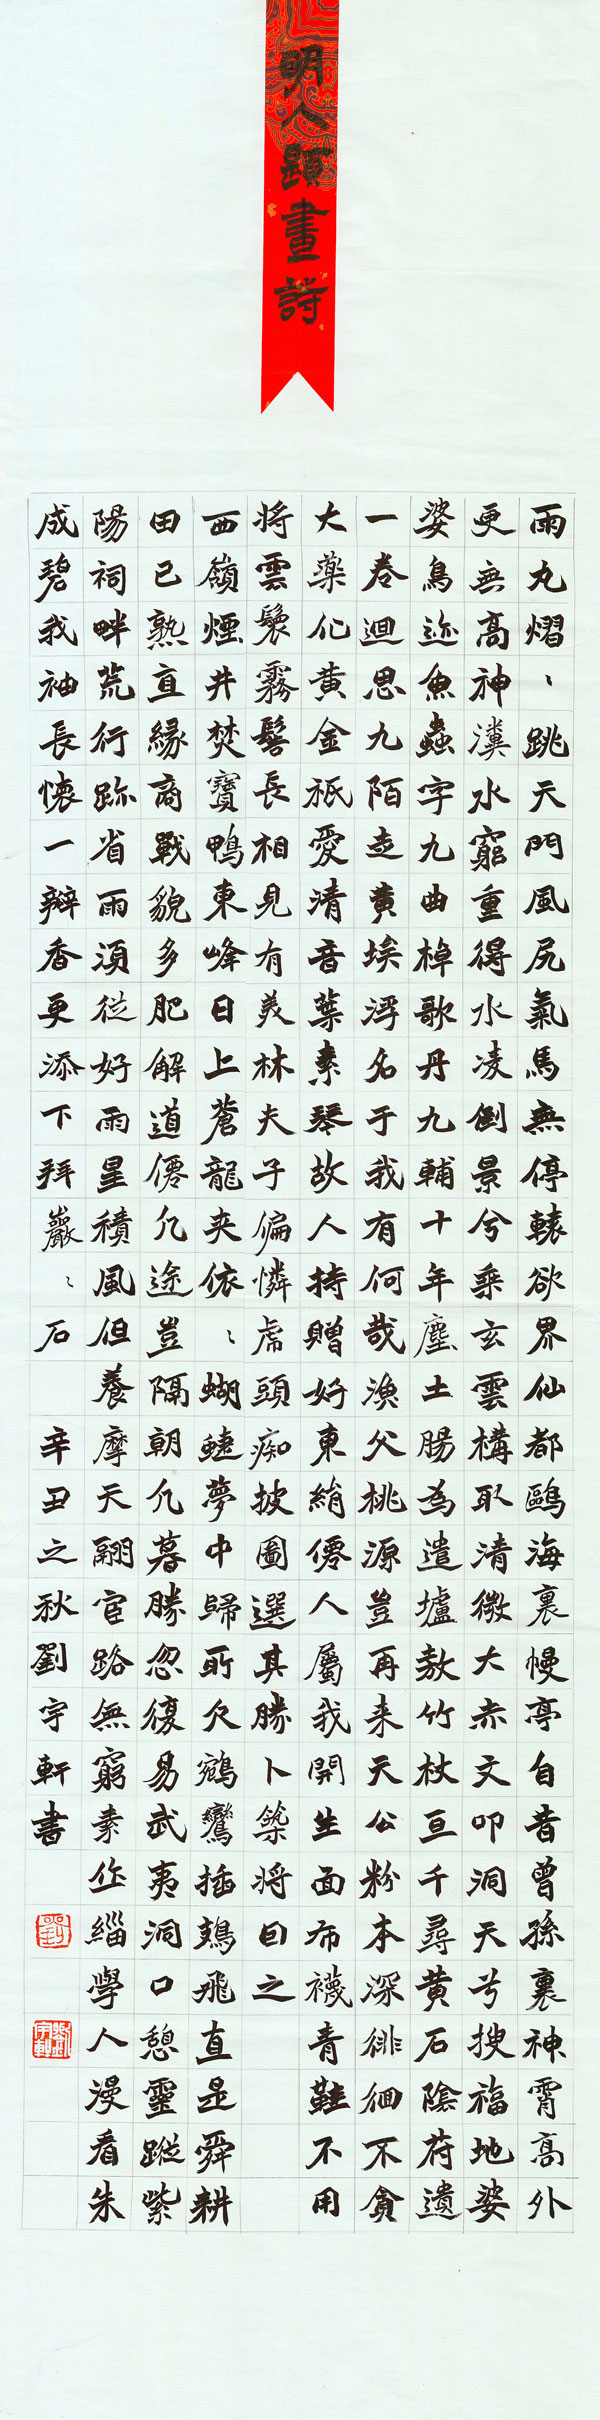 明人題畫詩
雨丸熠〻跳天門風尻氣馬無停轅欲界仙都鷗海裏幔亭自昔曾孫裏神霄高外
更無高神瀵水窮重得水凌倒景兮乘玄雲構取清微大赤文叩洞天兮搜福地婆
婆鳥迹魚蟲字九曲棹歌丹九輔十年塵土腸為遣壚敖竹杖亘千尋黃石陰符遺
一卷迴思九陌走黃埃浮名于我有何哉漁父桃源豈再来天公粉本深徘徊不貪
大藥化黃金祇愛清音葉素琴故人持贈好東絹僊人屬我開生面布襪青鞋不用
將雲鬟霧髻長相見有美林夫子偏憐虎頭痴披圖選其勝卜築將曰之
西嶺煙井焚寶鴨東峰日上蒼龍夾依〻蝴蜨夢中歸所欠鵷鸞插鵕飛直是舜耕
田已熟直緣商戰貌多肥解道僊凡途豈隔朝凡暮勝忽復易武夷洞口憩靈蹤紫
陽祠畔荒行跡省雨須從好雨星積風但養摩天翮宦路無窮素作緇學人漫看朱
成碧我袖長懷一瓣香更添下拜巖〻石
辛丑之秋劉宇軒書
劉
劉宇軒